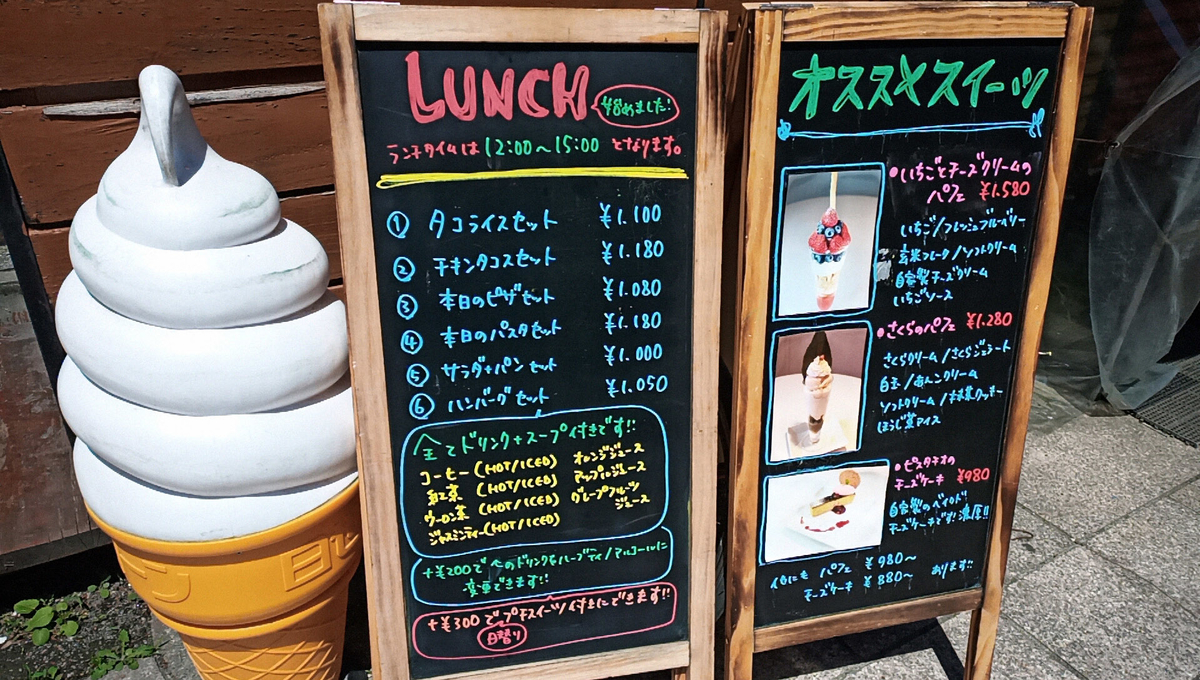 LUNCH 始めました!
ランチタイムは 12:00〜15:00 となります。
① タコライスセット ¥1.100
② チキンタコスセット ¥1.180
③ 本日のピザセット ¥1.080
④ 本日のパスタセット ¥1.180
⑤ サラダ+パンセット ¥1.000
⑥ ハンバーグセット ¥1.050
全てドリンク+スープ付きです!!
コーヒー(HOT/ICED) オレンジジュース
紅茶 (HOT/ICED) アップルジュース
ウーロン茶(HOT/ICED) グレープフルーツ
ジャスミンティー(HOT/ICED) ジュース
+¥200で 他のドリンク&ハーブティ/アルコールに
変更できます!!
+¥300でプチスイーツ付きにできます!!
日替り
オススメスイーツ
•いちごとチーズクリームの
パフェ ¥1.580
いちご/フレッシュブルーベリー
玄米フレーク/ソフトクリーム
自家製チーズクリーム
いちごソース
•さくらのパフェ ¥1.280
さくらクリーム/さくらジェラート
白玉/あんこクリーム
ソフトクリーム/抹茶クッキー
ほうじ茶アイス
•ピスタチオの
チーズケーキ ¥980
自家製のベイクド
チーズケーキです!濃厚!!
他にも パフェ ¥980〜
チーズケーキ ¥880〜 あります!!